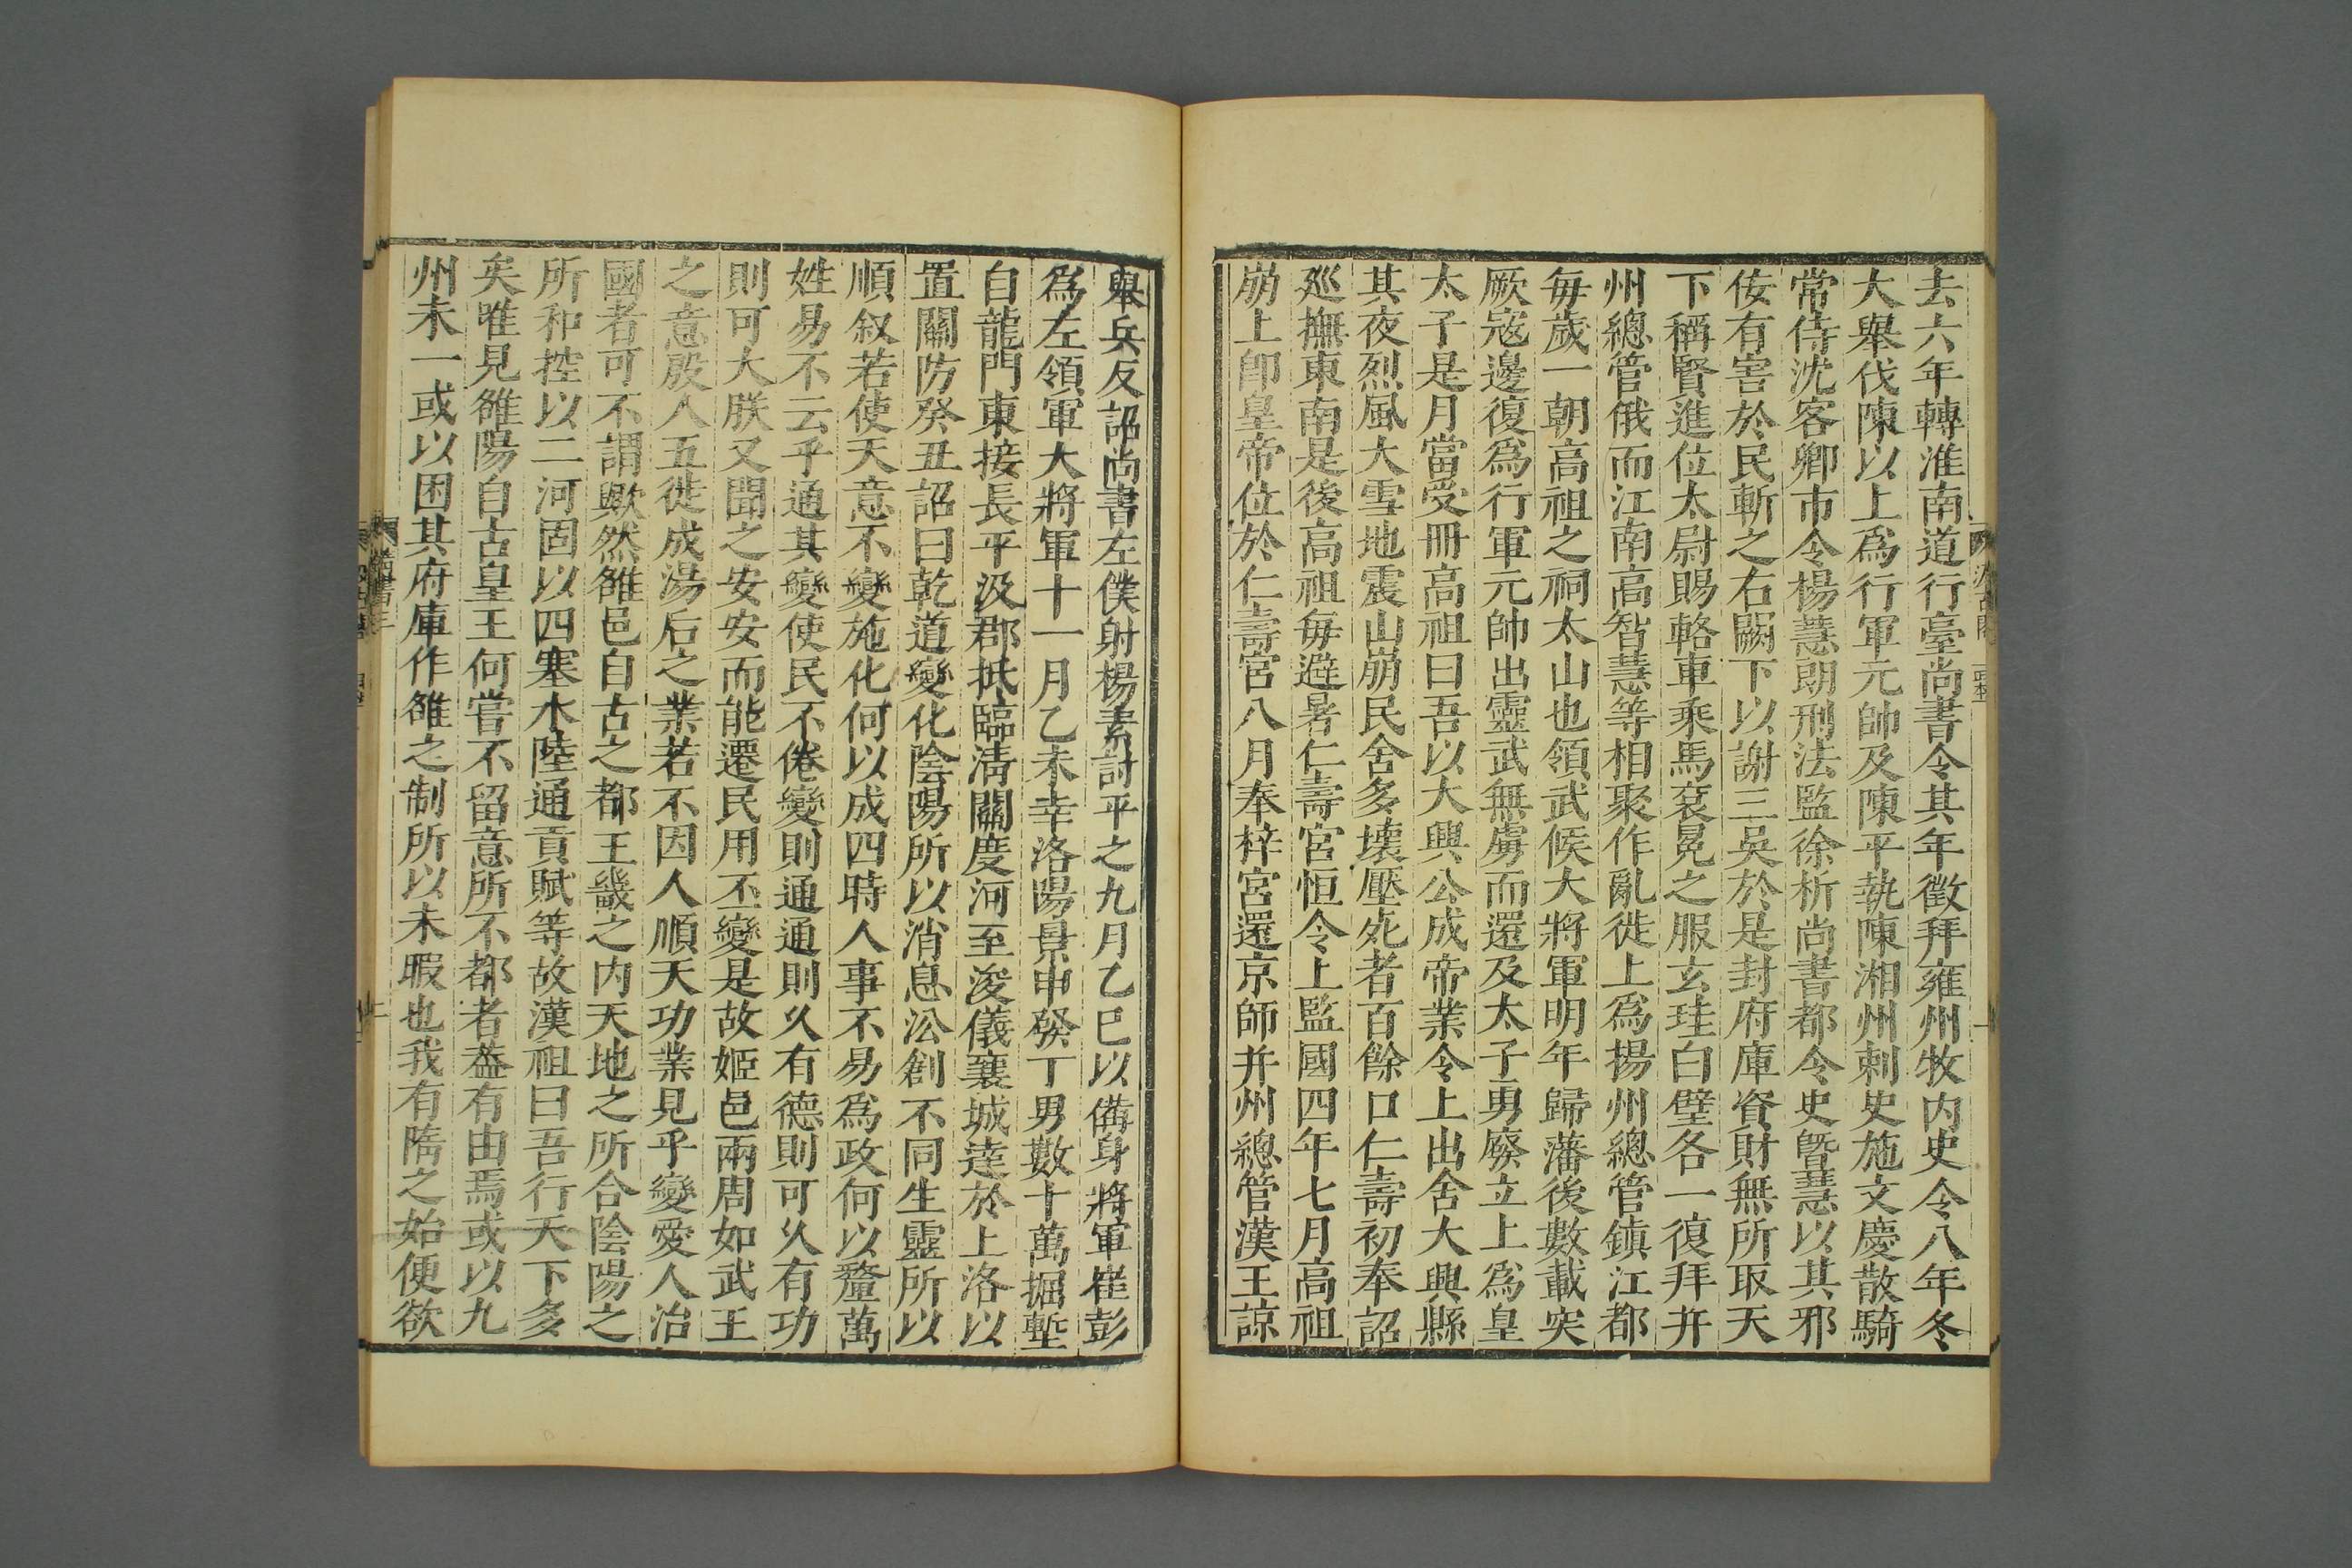 去六年轉淮南道行臺尚書令其年徵拜雍州牧内史令八年冬
大舉伐陳以上爲行軍元帥及陳平執陳湘州刺史施文慶散騎
常侍沈客卿市令楊慧朗刑法監徐析尚書都令史曁慧以其邪
佞有害於民斬之右闕下以謝三吳於是封府庫資財無所取天
下稱賢進位太尉賜輅車乘馬衮冕之服玄珪白璧各一復拜并
州總管俄而江南高智慧等相聚作亂徙上爲揚州總管鎮江都
每歲一朝高祖之祠太山也領武候大將軍明年歸藩後數載突
厥寇邊復爲行軍元帥出靈武無虜而還及太子勇廢立上爲皇
太子是月當受冊高祖曰吾以大興公成帝業令上出舍大興縣
其夜烈風大雪地震山崩民舍多壞壓死者百餘口仁壽初奉詔
巡撫東南是後高祖每避暑仁壽宮恒令上監國四年七月高祖
崩上卽皇帝位於仁壽宮八月奉梓宮還京師并州總管漢王諒
舉兵反詔尚書左僕射楊素討平之九月乙巳以備身將軍崔彭
爲左領軍大將軍十一月乙未幸洛陽景申發丁男數十萬掘塹
自龍門東接長平汲郡抵臨淸關度河至浚儀襄城達於上洛以
置關防癸丑詔曰乾道變化陰陽所以消息㳂創不同生靈所以
順叙若使天意不變施化何以成四時人事不易爲政何以釐萬
姓易不云乎通其變使民不倦變則通通則久有德則可久有功
則可大朕又聞之安安而能遷民用丕變是故姬邑兩周如武王
之意殷人五徙成湯后之業若不因人順天功業見乎變愛人治
國者可不謂歟然雒邑自古之都王畿之内天地之所合陰陽之
所和控以二河固以四塞水陸通貢賦等故漢祖曰吾行天下多
矣唯見雒陽自古皇王何嘗不留意所不都者葢有由焉或以九
州未一或以困其府庫作雒之制所以未暇也我有隋之始便欲